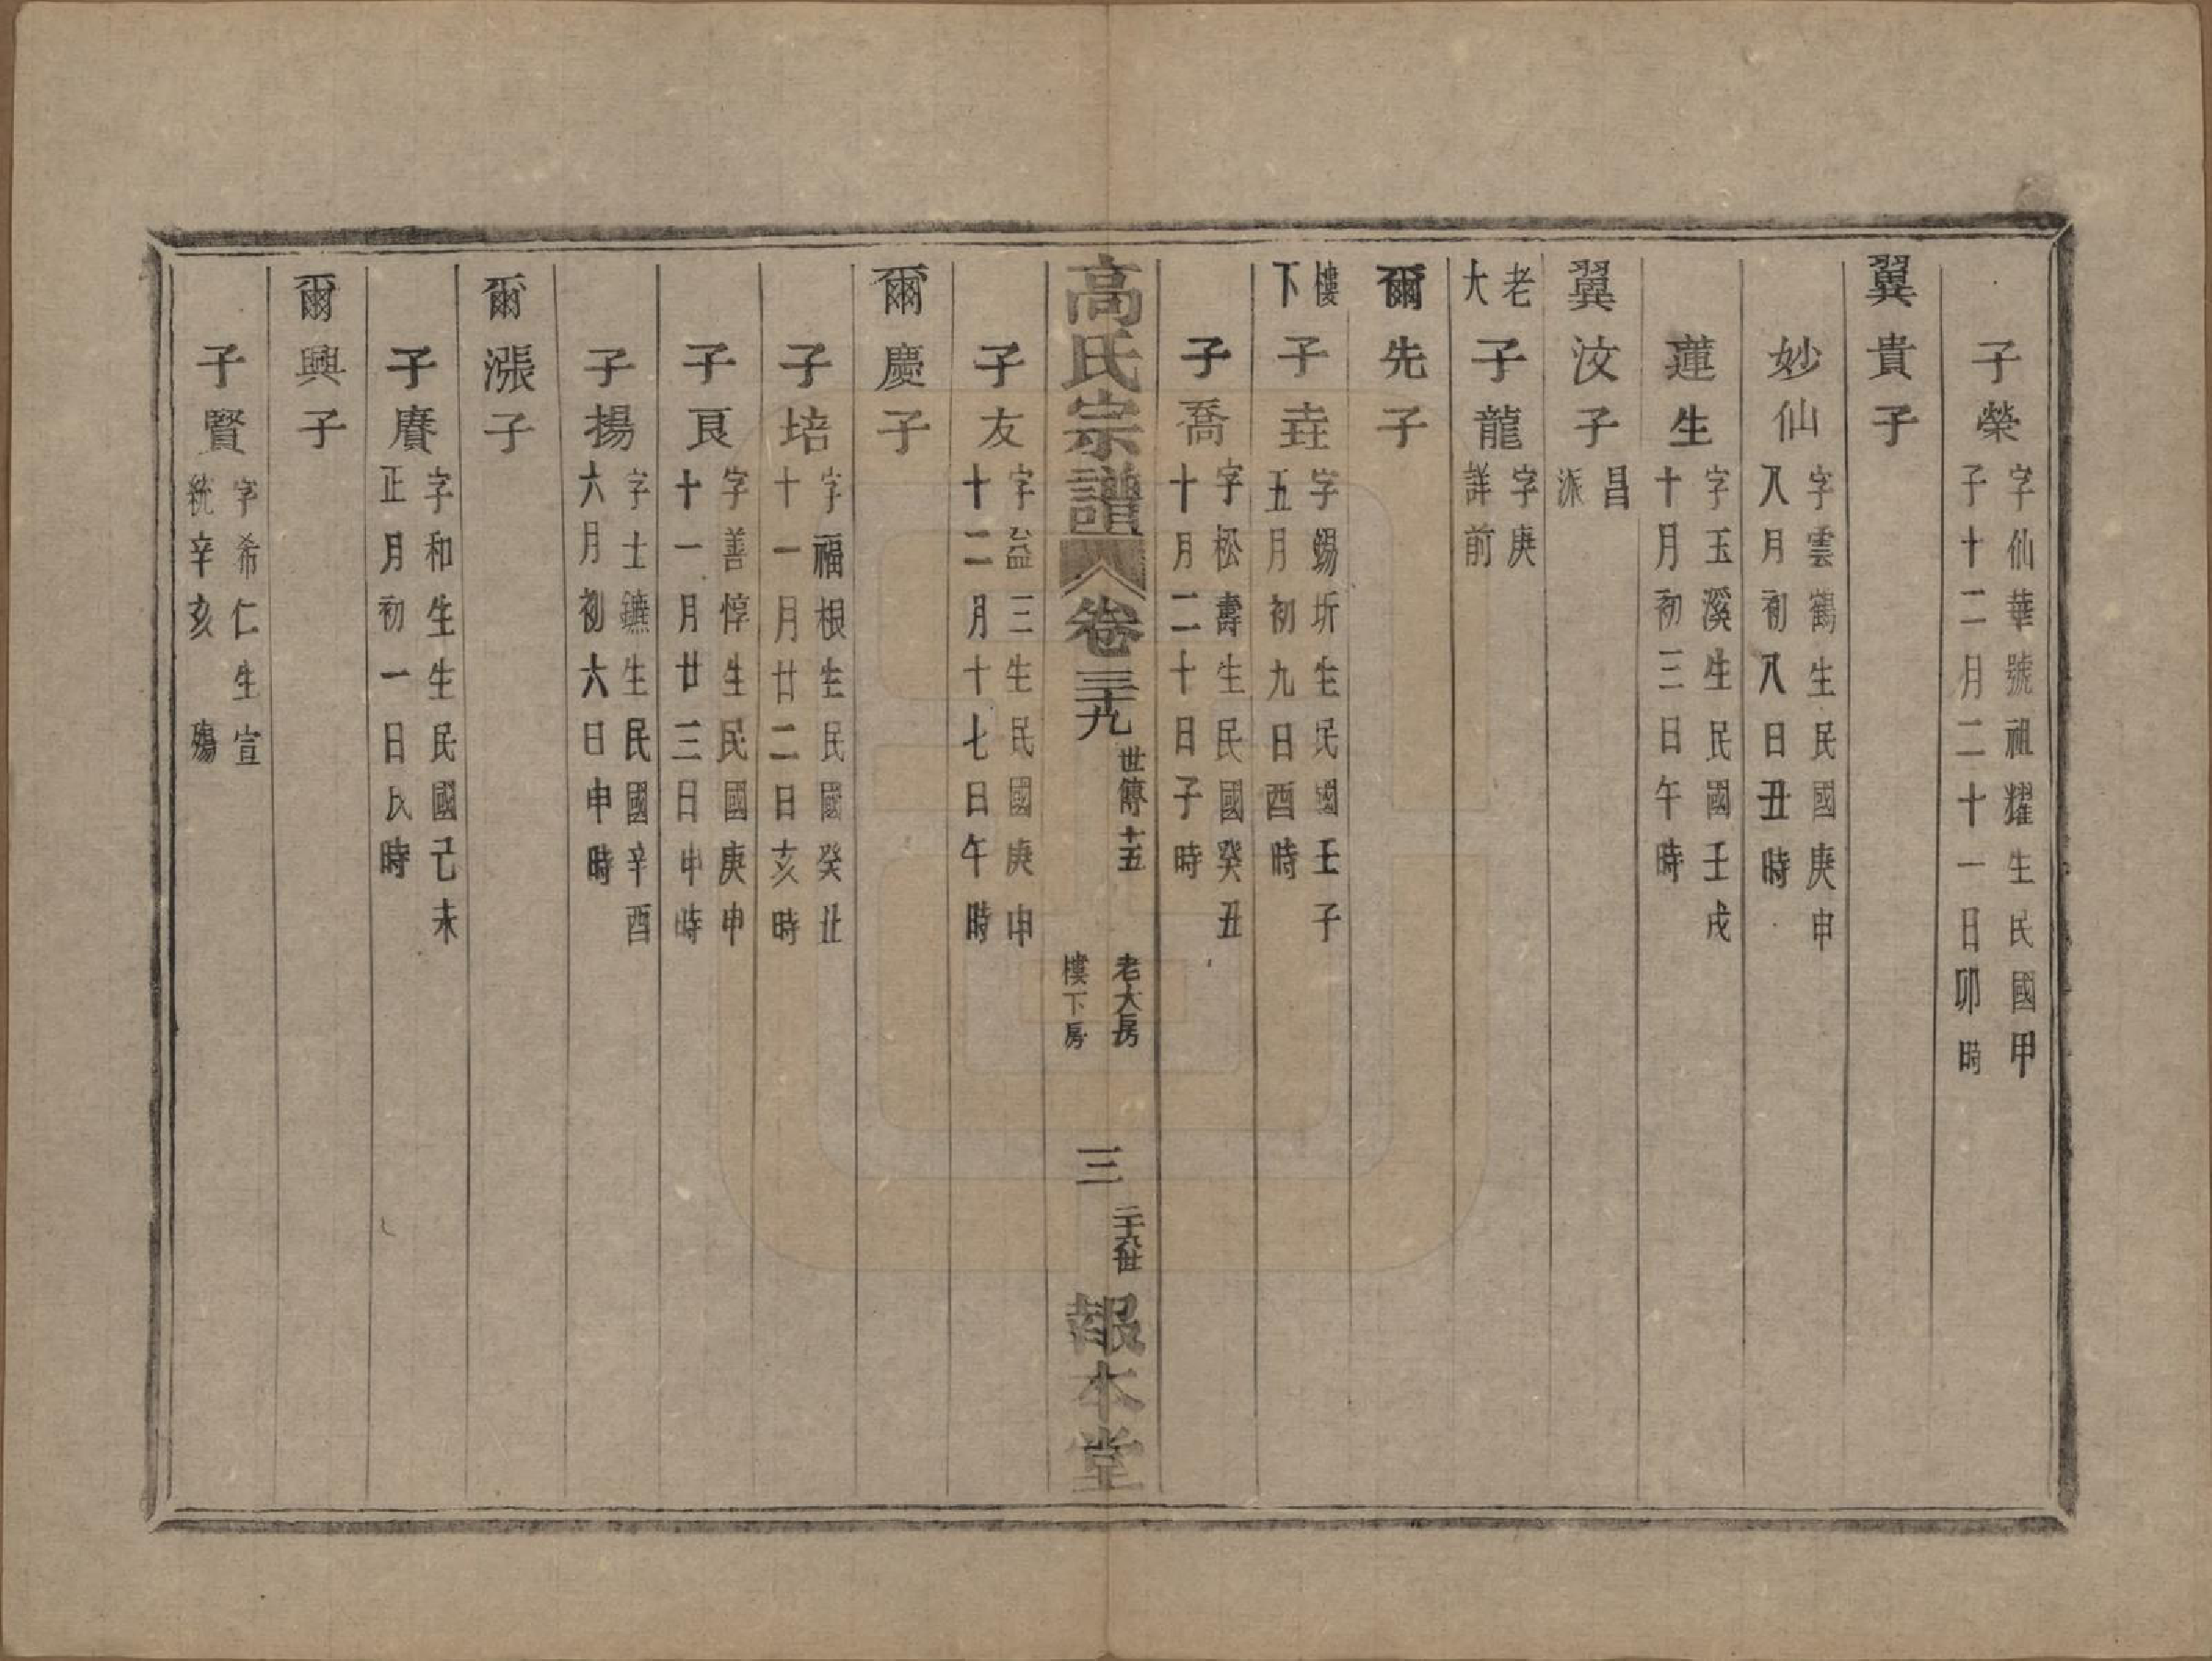 子榮 字仙華號祖耀生民國甲
子十二月二十一日卯時
翼貴子
妙仙 字雲鶴生民國庚申
八月初八日丑時
蓮生 字玉溪生民國壬戌
十月初三日午時
翼汶子 昌
派
老大 子龍 字庚
詳前
爾先子
樓下 子垚 字錫圻生民國壬子
五月初九日酉時
子喬 字松壽生民國癸丑
十月二十日子時
高氏宗譜 卷三十九 世傳十五 老大房 樓下房 三 二十六世 報本堂
子友 字益三生民國庚申
十二月十七日午時
爾慶子
子培 字福根生民國癸丑
十一月廿二日亥時
子良 字善惇生民國庚申
十一月廿三日申時
子揚 字士鑣生民國辛酉
六月初六日申時
爾漲子
子賡 字和生生民國己未
正月初一日辰時
爾興子
子賢 字希仁生宣
統辛亥 殤